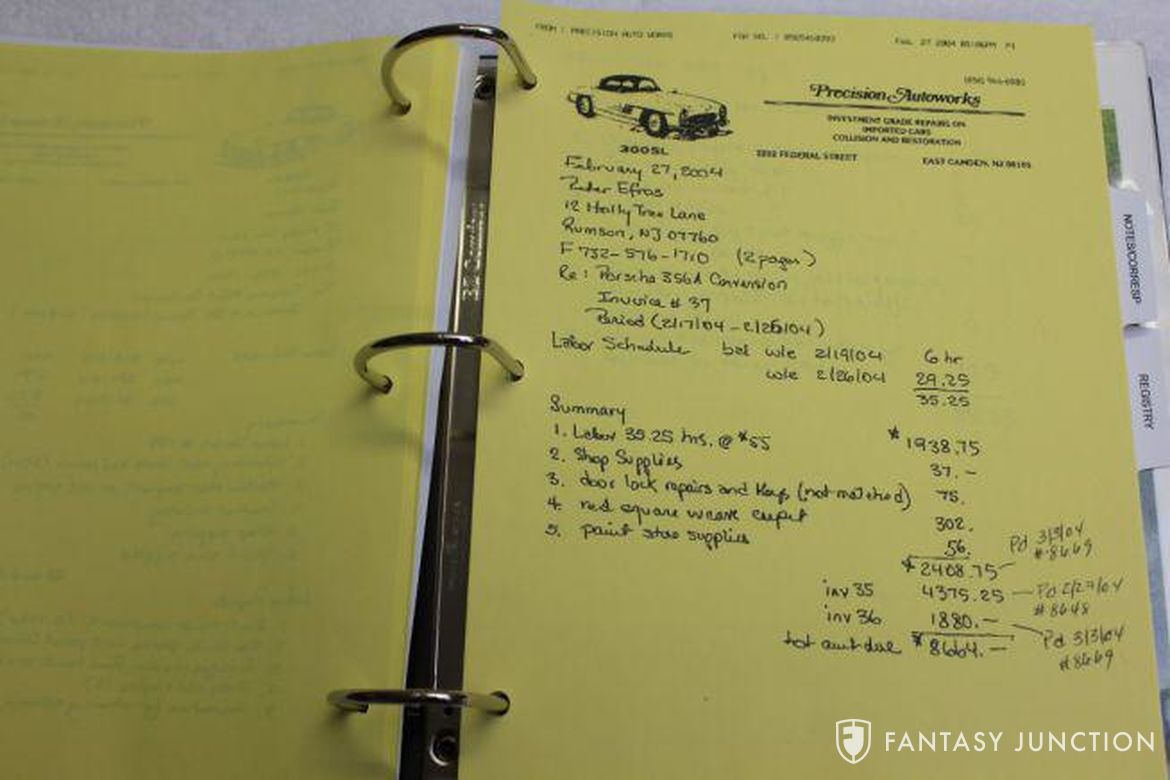 FROM : PRECISION AUTO WORKS FAX NO. : 8565468393 Feb. 27 2004 05:06PM P1
Precision Autoworks
INVESTMENT GRADE REPAIRS ON
IMPORTED CARS
COLLISION AND RESTORATION
300SL
FEDERAL STREET EAST CAMDEN, NJ 08105
February 27, 2004
Efros
12 Holly Tree Lane
Rumson, NJ 07760
F 732-576-1710 (2 pages)
Re: Porsche 356A Conversion
Invoice # 37
Period (2/17/04 - 2/26/04)
Labor Schedule bal w/e 2/19/04 6 hr
w/e 2/26/04 29.25
35.25
Summary
1. Labor 35.25 hrs. @ $55 $1938.75
2. Shop Supplies 37.-
3. door lock repairs and keys (not matched) 75.
4. red square weave carpet 302.
5. paint store supplies 56.
$2408.75 - Pd 3/3/04 #8669
inv 35 4375.25 - Pd 2/27/04 #8648
inv 36 1880.- Pd 3/3/04 #8669
tot amt due $8664.-
NOTES/CORRESP
REGISTRY
FANTASY JUNCTION